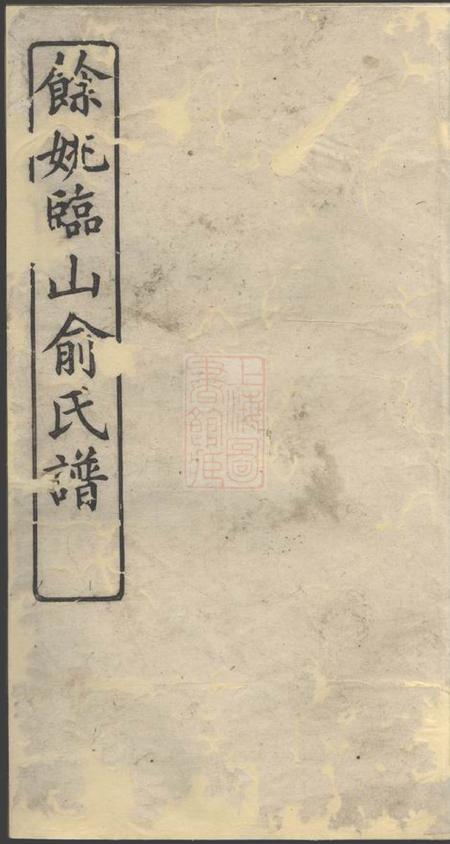 餘姚臨山俞氏譜
上海圖
書館藏